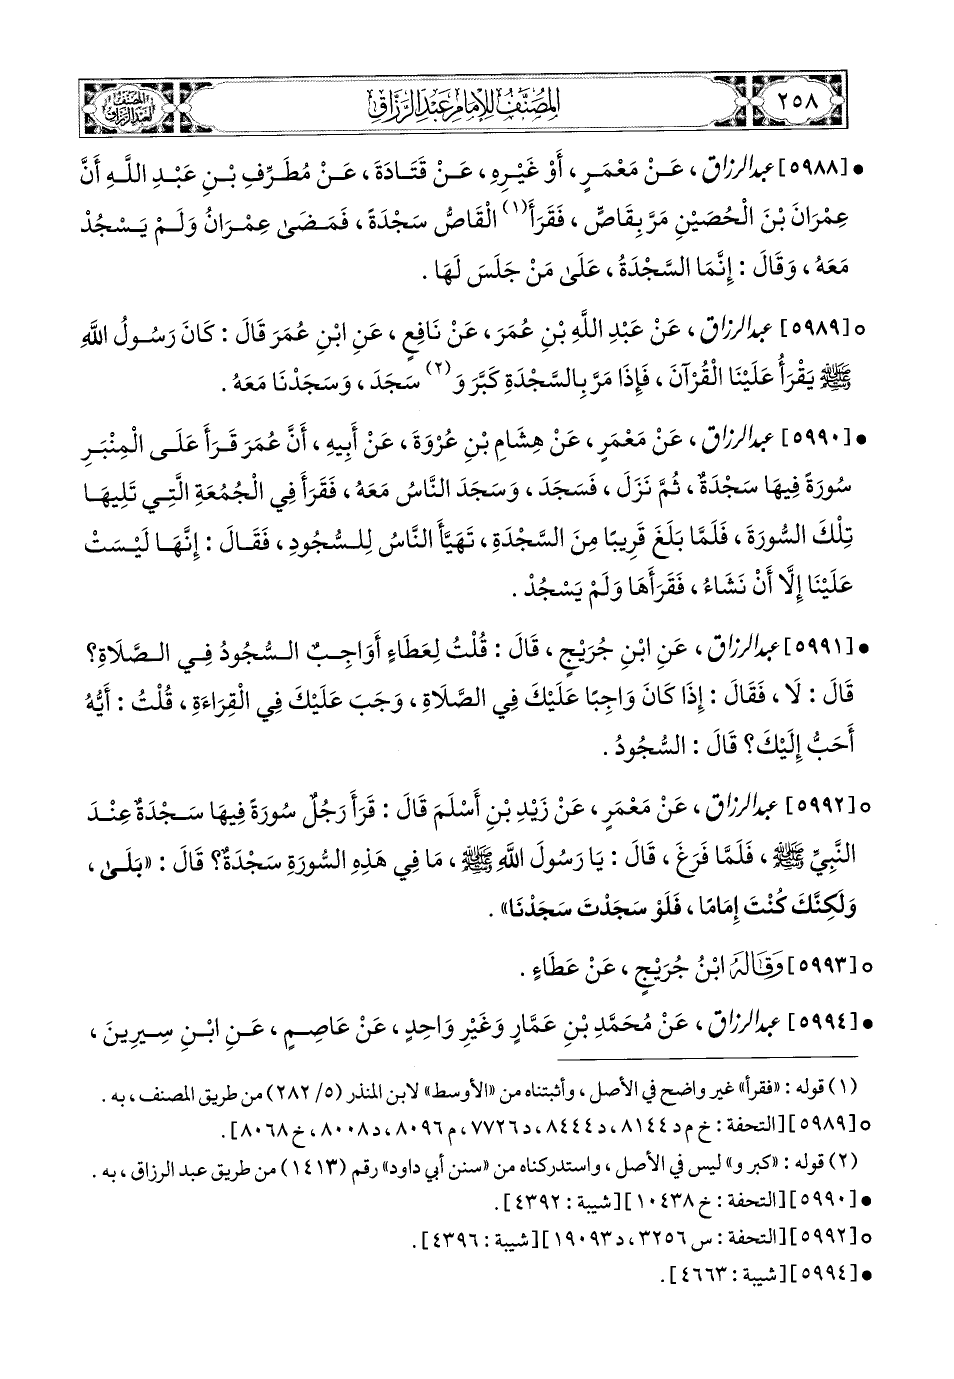 ٢٥٨
المصنف للإمام عبد الرزاق
المصنف لعبد الرزاق
• [٥٩٨٨] عبد الرزاق، عَنْ مَعْمَرٍ، أَوْ غَيْرِهِ، عَنْ قَتَادَةَ، عَنْ مُطَرِّفِ بْنِ عَبْدِ اللَّهِ أَنَّ
عِمْرَانَ بْنَ الْحُصَيْنِ مَرَّ بِقَاصٍّ، فَقَرَأَ(١) الْقَاصُّ سَجْدَةً، فَمَضَى عِمْرَانُ وَلَمْ يَسْجُدْ
مَعَهُ، وَقَالَ: إِنَّمَا السَّجْدَةُ، عَلَى مَنْ جَلَسَ لَهَا.
٥ [٥٩٨٩] عبد الرزاق، عَنْ عَبْدِ اللَّهِ بْنِ عُمَرَ، عَنْ نَافِعٍ، عَنِ ابْنِ عُمَرَ قَالَ: كَانَ رَسُولُ اللَّهِ
ﷺ يَقْرَأُ عَلَيْنَا الْقُرْآنَ، فَإِذَا مَرَّ بِالسَّجْدَةِ كَبَّرَ وَ(٢) سَجَدَ، وَسَجَدْنَا مَعَهُ.
• [٥٩٩٠] عبد الرزاق، عَنْ مَعْمَرٍ، عَنْ هِشَامِ بْنِ عُرْوَةَ، عَنْ أَبِيهِ، أَنَّ عُمَرَ قَرَأَ عَلَى الْمِنْبَرِ
سُورَةً فِيهَا سَجْدَةٌ، ثُمَّ نَزَلَ، فَسَجَدَ، وَسَجَدَ النَّاسُ مَعَهُ، فَقَرَأَ فِي الْجُمُعَةِ الَّتِي تَلِيهَا
تِلْكَ السُّورَةَ، فَلَمَّا بَلَغَ قَرِيبًا مِنَ السَّجْدَةِ، تَهَيَّأَ النَّاسُ لِلسُّجُودِ، فَقَالَ: إِنَّهَا لَيْسَتْ
عَلَيْنَا إِلَّا أَنْ نَشَاءَ، فَقَرَأَهَا وَلَمْ يَسْجُدْ.
• [٥٩٩١] عبد الرزاق، عَنِ ابْنِ جُرَيْجٍ، قَالَ: قُلْتُ لِعَطَاءٍ أَوَاجِبٌ السُّجُودُ فِي الصَّلَاةِ؟
قَالَ: لَا، فَقَالَ: إِذَا كَانَ وَاجِبًا عَلَيْكَ فِي الصَّلَاةِ، وَجَبَ عَلَيْكَ فِي الْقِرَاءَةِ، قُلْتُ: أَيُّهُ
أَحَبُّ إِلَيْكَ؟ قَالَ: السُّجُودُ.
٥ [٥٩٩٢] عبد الرزاق، عَنْ مَعْمَرٍ، عَنْ زَيْدِ بْنِ أَسْلَمَ قَالَ: قَرَأَ رَجُلٌ سُورَةً فِيهَا سَجْدَةٌ عِنْدَ
النَّبِيِّ ﷺ، فَلَمَّا فَرَغَ، قَالَ: يَا رَسُولَ اللَّهِ ﷺ، مَا فِي هَذِهِ السُّورَةِ سَجْدَةٌ؟ قَالَ: «بَلَى،
وَلَكِنَّكَ كُنْتَ إِمَامًا، فَلَوْ سَجَدْتَ سَجَدْنَا».
٥ [٥٩٩٣] وَقَالَهُ ابْنُ جُرَيْجٍ، عَنْ عَطَاءٍ.
• [٥٩٩٤] عبد الرزاق، عَنْ مُحَمَّدِ بْنِ عَمَّارٍ وَغَيْرِ وَاحِدٍ، عَنْ عَاصِمٍ، عَنِ ابْنِ سِيرِينَ،
(١) قوله: «فقرأ» غير واضح في الأصل، وأثبتناه من «الأوسط» لابن المنذر (٥/ ٢٨٢) من طريق المصنف، به.
٥ [٥٩٨٩] [التحفة: خ م د ٨١٤٤، د ٨٤٤٤، د ٧٧٢٦، م ٨٠٩٦، د ٨٠٠٨، خ ٨٠٦٨].
(٢) قوله: «كبر و» ليس في الأصل، واستدركناه من «سنن أبي داود» رقم (١٤١٣) من طريق عبد الرزاق، به.
• [٥٩٩٠] [التحفة: خ ١٠٤٣٨] [شيبة: ٤٣٩٢].
٥ [٥٩٩٢] [التحفة: س ٣٢٥٦، د ١٩٠٩٣] [شيبة: ٤٣٩٦].
• [٥٩٩٤] [شيبة: ٤٦٦٣].